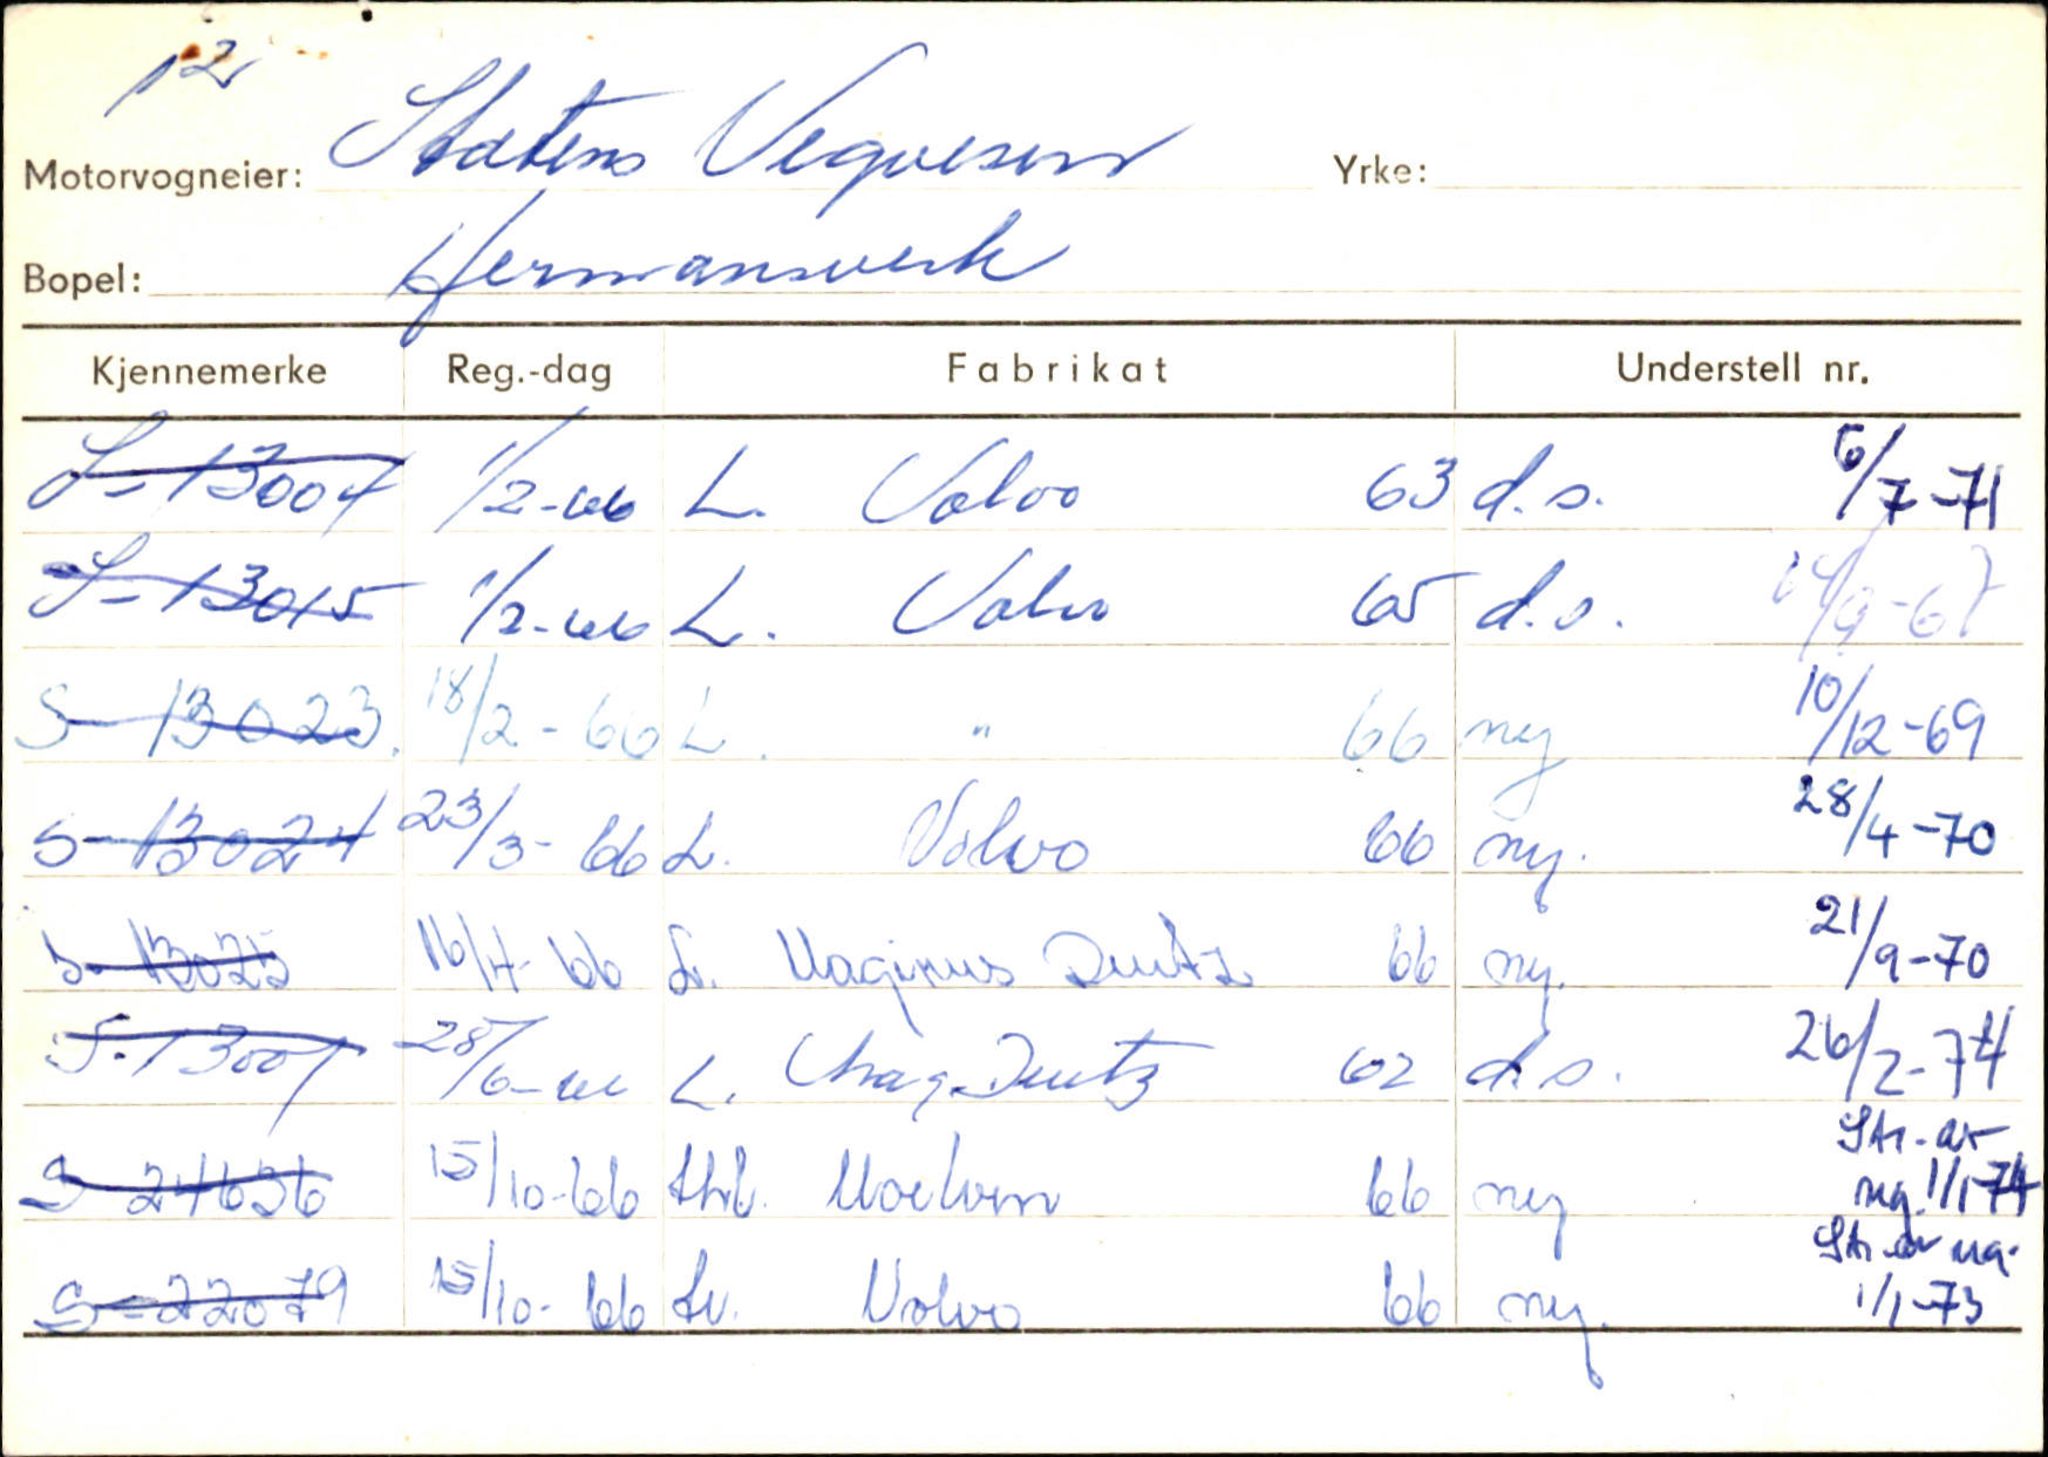 12
Motorvogneier: Statens Vegvesen Yrke:
Bopel: Hermansverk
Kjennemerke Reg.-dag Fabrikat Understell nr.
S-13004 1/2-66 L. Volvo 63 d.s. 6/7-71
S-13015 1/2-66 L. Volvo 65 d.s. 14/9-67
S-13023. 18/2-66 L. " 66 ny 10/12-69
S-13024 23/3-66 L. Volvo 66 ny. 28/4-70
S-13025 16/4-66 Lv. Maginus Deutz 66 ny. 21/9-70
S-13007 28/6-66 L. Mag. Deutz 62 d.s. 26/2-74
S-24636 15/10-66 thb. Moelven 66 ny Str. av reg. 1/1 74
S-22079 15/10-66 Lv. Volvo 66 ny. Str. av reg. 1/1-73